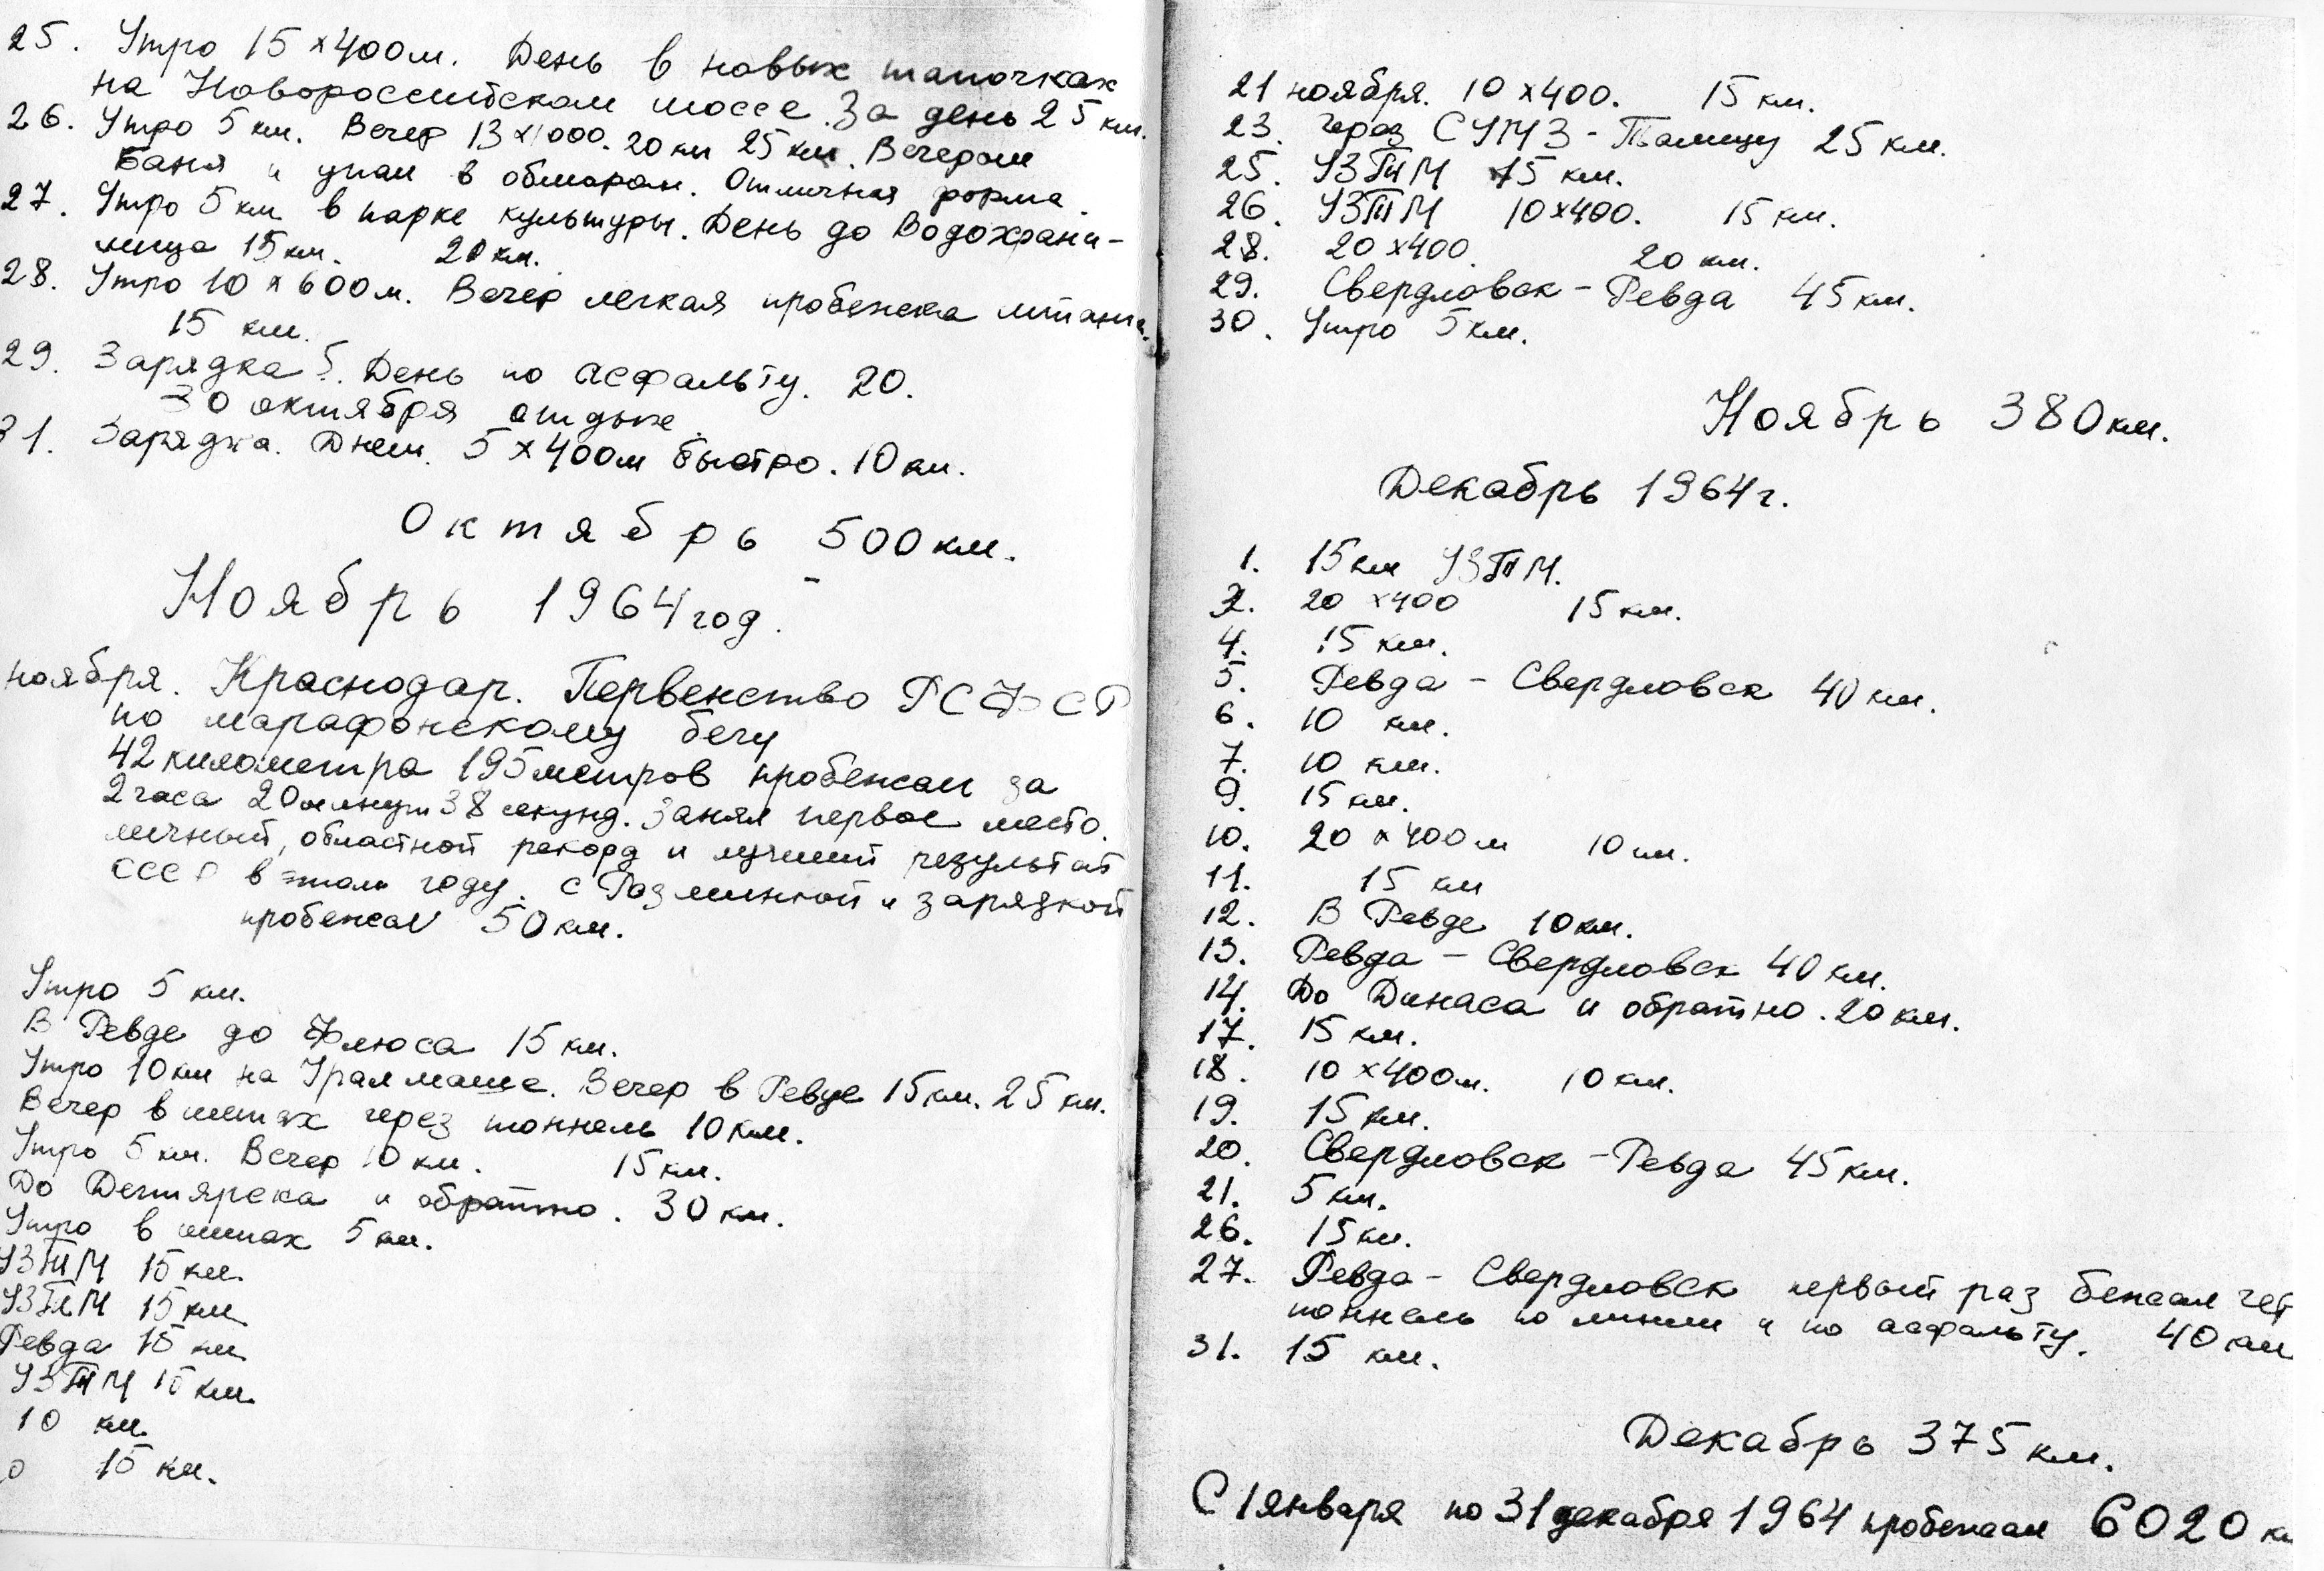 25. Утро 15 х 400м. День в новых тапочках
на Новороссийском шоссе. За день 25 км.
26. Утро 5 км. Вечер 13 х 1000. 20 км 25 км. Вечером
баня и упал в обморок. Отличная форма.
27. Утро 5 км в парке культуры. День до Водохрани-
лища 15 км. 20 км.
28. Утро 10 х 600 м. Вечер легкая пробежка штанга.
15 км.
29. Зарядка 5. День по асфальту. 20.
30 октября отдых.
31. Зарядка. Днем. 5 х 400м быстро. 10 км.
Октябрь 500 км.
Ноябрь 1964 год.
ноября. Краснодар. Первенство РСФСР
по марафонскому бегу
42 километра 195 метров пробежал за
2 часа 20 минут 38 секунд. Занял первое место.
личный, областной рекорд и лучший результат
СССР в этом году. С Разминкой и зарядкой
пробежал 50 км.
Утро 5 км.
В Ревде до Флюса 15 км.
Утро 10 км на Уралмаше. Вечер в Ревде 15 км. 25 км.
Вечер в шипах через тоннель 10 км.
Утро 5 км. Вечер 10 км. 15 км.
До Дегтярска и обратно. 30 км.
Утро в шипах 5 км.
УЗТМ 15 км.
УЗТМ 15 км
Ревда 15 км
УЗТМ 15 км.
10 км.
15 км.
21 ноября. 10 х 400. 15 км.
23. через СУМЗ - Талицу 25 км.
25. УЗТМ 15 км.
26. УЗТМ 10х400. 15 км.
28. 20 х 400. 20 км.
29. Свердловск - Ревда 45 км.
30. Утро 5 км.
Ноябрь 380 км.
Декабрь 1964 г.
1. 15 км УЗТМ.
2. 20 х 400 15 км.
4. 15 км.
5. Ревда - Свердловск 40 км.
6. 10 км.
7. 10 км.
9. 15 км.
10. 20 х 400 м 10 км.
11. 15 км
12. В Ревде 10 км.
13. Ревда - Свердловск 40 км.
14. До Динаса и обратно. 20 км.
17. 15 км.
18. 10 х 400м. 10 км.
19. 15 км.
20. Свердловск - Ревда 45 км.
21. 5 км.
26. 15 км.
27. Ревда - Свердловск первый раз бежал чер
тоннель по линии и по асфальту. 40 км
31. 15 км.
Декабрь 375 км.
С 1 января по 31 декабря 1964 пробежал 6020 км